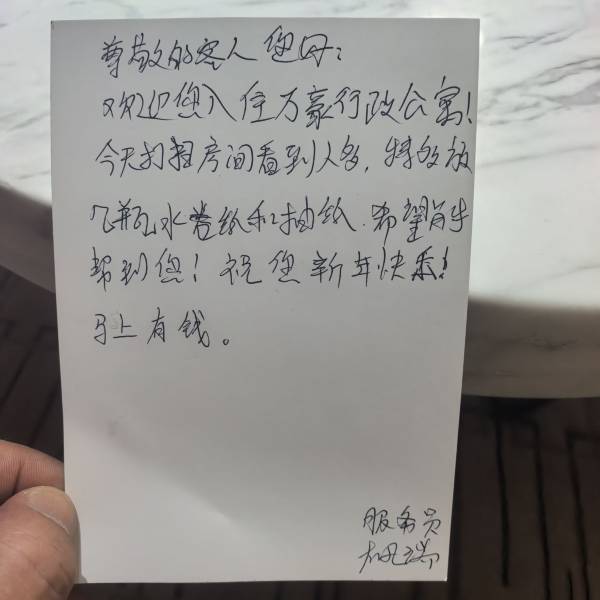 尊敬的客人您好:
欢迎您入住万豪行政公寓!
今天打扫房间看到人多,特多放
几瓶水卷纸和抽纸.希望能
帮到您!祝您新年快乐!
马上有钱。
服务员